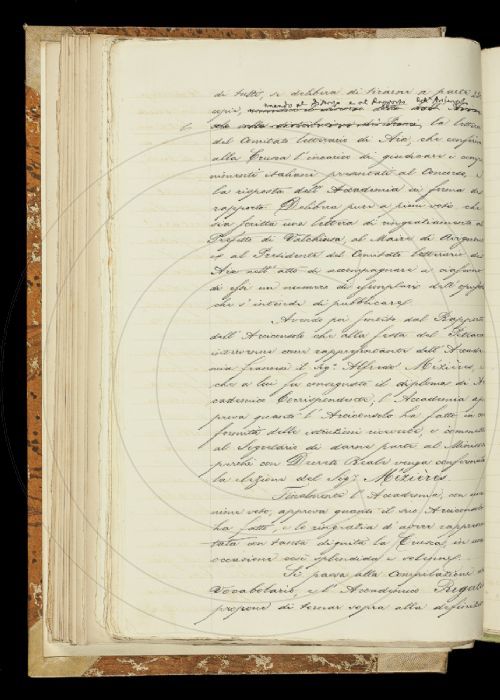 di tutti, si delibera di tirarne a parte
copie,
la lettera
del Comitato letterario di Aix, che
alla Crusca l'incarico di giudicare i
menti italiani presentati al Concorso, e
la risposta dell'Accademia in forma di
rapporto. Delibera pure a pieni voti, che
sia scritta una lettera di ringraziamento al
Prefetto di Valchiusa, al Maire di
e al Presidente del Comitato letterario di
Aix nell'atto di accompagnare a ciascuno
di essi un numero di esemplari dell'
che s'intende di pubblicare.
Avendo poi sentito dal Rapporto
dell'Arciconsolo che alla festa del Petrarca
intervenne come rappresentante dell'Accade
mia francese il Sig.r Alfredo Mézières, e
che a lui fu consegnato il diploma di Ac
cademico Corrispondente, l'Accademia ap
prova quanto l'Arciconsolo ha fatto in con
formità delle istruzioni ricevute, e commette
al Segretario di darne parte al Ministro
perché con Decreto Reale venga confermata
la elezione del Sig.r Mézières.
Finalmente l'Accademia, con
nime voto, approva quanto il suo Arciconsolo
ha fatto, e lo ringrazia d'aver rappresen
tata con tanta dignità la Crusca, in una
occasione così splendida e solenne.
Si passa alla compilazione del
Vocabolario, e l'Accademico Rigutini
propone di tornar sopra alla